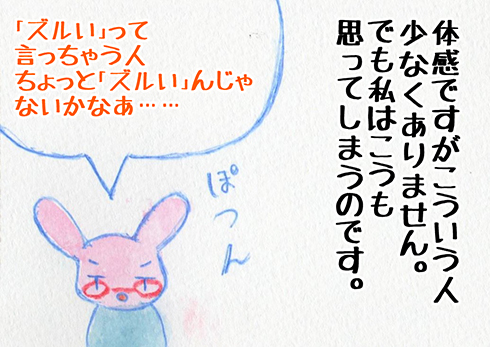 体感ですがこういう人
少なくありません。
でも私はこうも
思ってしまうのです。
「ズルい」って
言っちゃう人
ちょっと「ズルい」んじゃ
ないかなぁ……
ぽつん